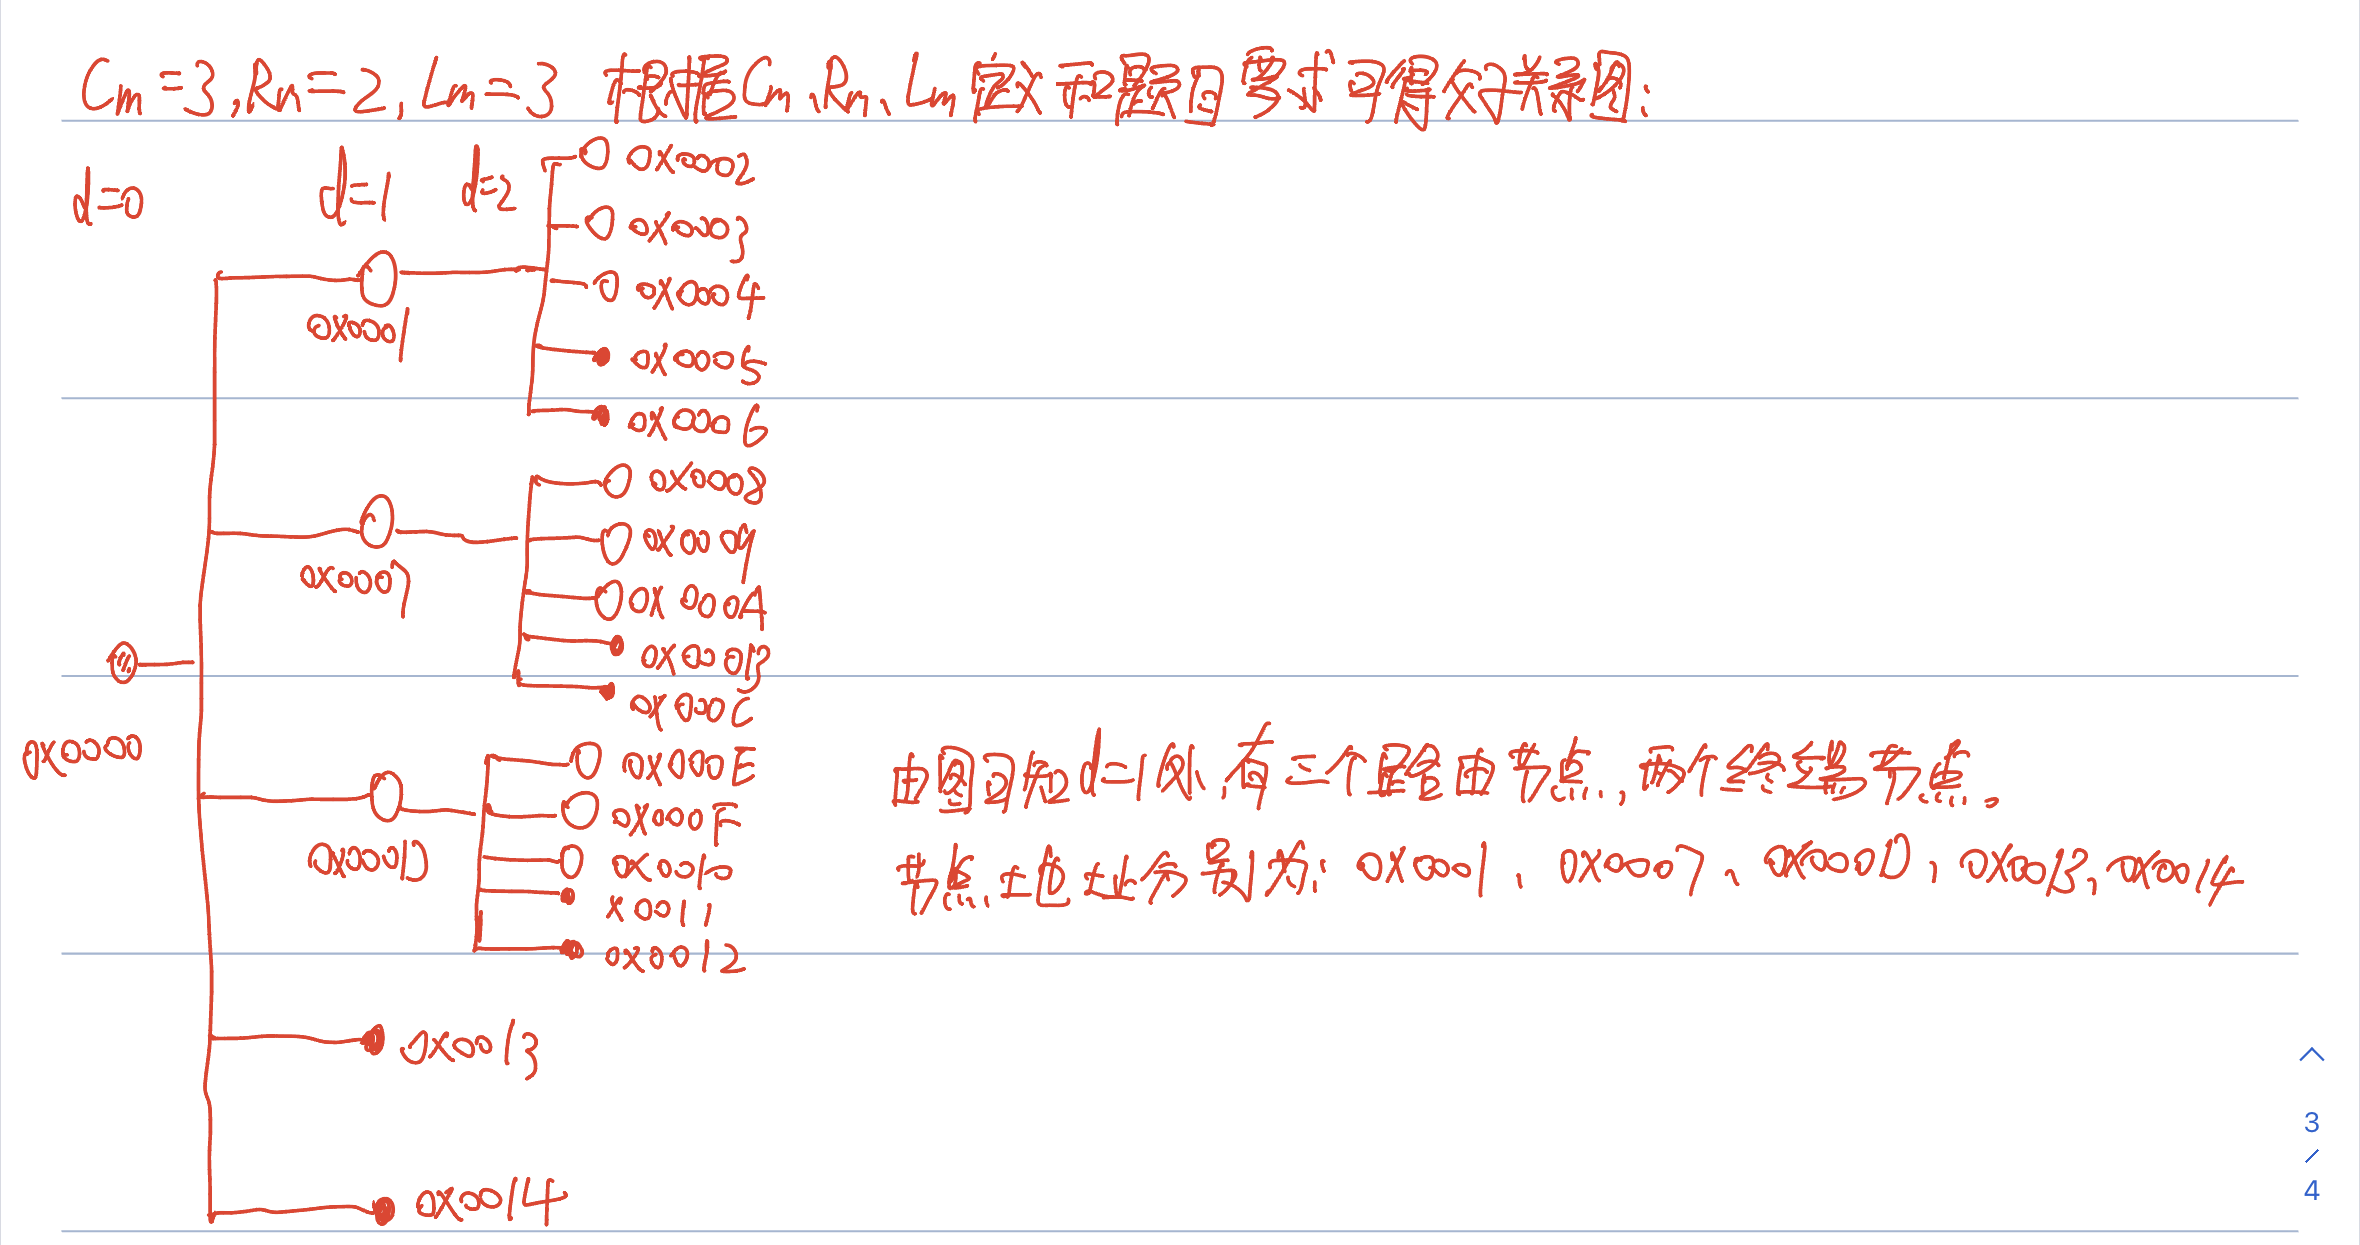 Cm=3,Rm=2,Lm=3 根据Cm、Rm、Lm定义和题目要求可得父子关系图:
d=0 d=1 d=2
0x0002
0x0003
0x0004
0x0001
0x0005
0x0006
0x0008
0x0009
0x0007
0x000A
0x000B
0x000C
0x0000
0x000E
0x000F
0x000D
0x0010
x0011
0x0012
由图可知d=1处,有三个路由节点,两个终端节点。
节点地址分别为:0x0001、0x0007、0x000D,0x0013,0x0014
0x0013
0x0014
3
/
4